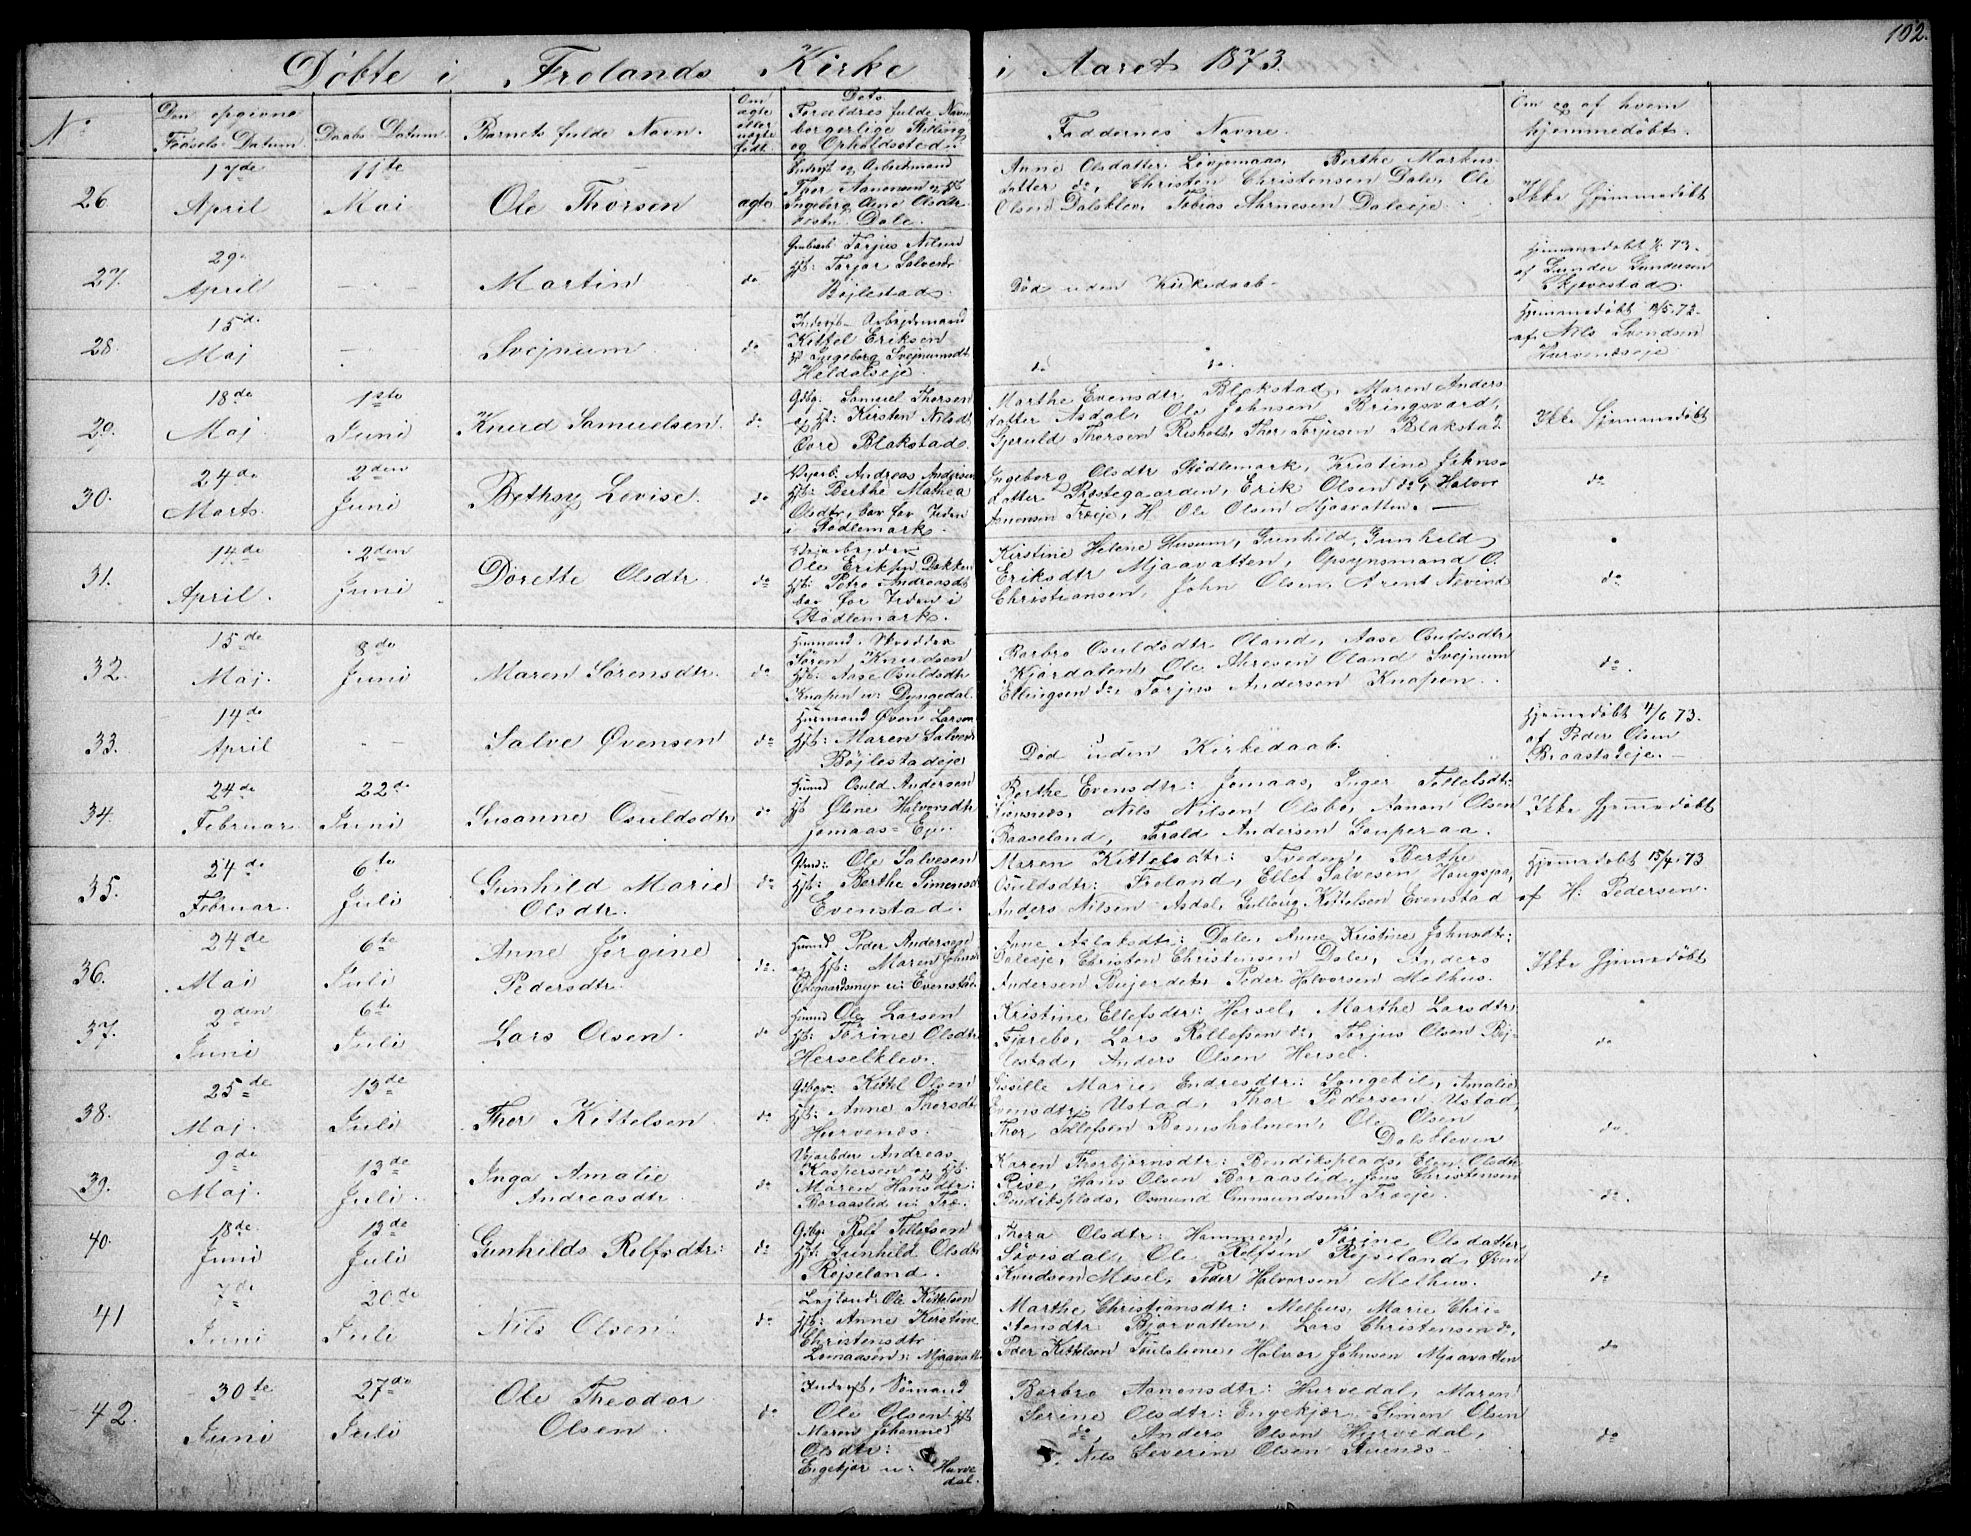 102.
Døbte i Frolands Kirke i Aaret 1873.
No
Den opgivne Fødsels Datum.
Daabs Datum.
Barnets fulde Navn.
Om ægte eller uægte født.
Dets Forældres fulde Navn borgerlige Stilling og Opholdssted
Faddernes Navne.
Om og af hvem hjemmedøbt.
26
17de April
11te Mai
Ole Thorsen
ægte
Inderst og Arbeidsmand
Thor Aanonsen og
Ingeborg Olsdtr
Dale.
Anne Olsdatter Løvjomaas, Berthe Markus-
datter do, Christen Christensen Dale, Ole
Olsen Dalsklev, Tobias Daleeje.
Ikke Hjemmedøbt
27.
29de April
Martin
do
Torjus Nilsen
Hst: Torjør Salvesdtr
Bøjlestad.
Død uden Kirkedaab.
Hjemmedøbt 73.
af Gunder Gundersen
Skjævestad.
28.
15de Maj
Svejnum
do
Inderst Arbejdsmand
Kittel Eriksen
Ingeborg Svejnumsdtr
Heldalseje.
do do.
Hjemmedøbt
af Nils Svendsen
Hurvendseje
29.
18de Maj.
1ste Juni
Knud Samuelsen.
do.
Gbr. Samuel Thorsen
og Hst: Kirsten Nilsdtr
Øvre Blakstad.
Marthe Evensdtr Blakstad, Maren Anders
datter Asdal, Ole Johnsen Bringsvard,
Gjeruld Thorsen Risholt, Thor Torjusen Blakstad.
Ikke Hjemmedøbt
30.
24de Marts.
2den Juni
Bethsy Lovise.
do
Vejarb. Andreas Andersen
Hst: Berthe Mathea
Olsdtr, bor for Tiden
i Stødlemark.
Ingeborg Olsdtr Stødlemark, Kristine Johns-
datter Præstegaarden, Erik Olsen do, Halvor
Aanonsen Træeje, H. Ole Olsen Mjaavatten.
do
31.
14de April.
2den Juni
Dorette Olsdtr.
do
Vejarbejder
Ole Eriksen Dakken
Hst: Petra Andreasdt
bor for Tiden i
Stødlemark.
Kirstine Helene Husum, Gunhild
Eriksdtr Mjaavatten, Opsynsmand O.
Christiansen, John Olsen, Arent
do
32.
15de Maj.
8de Juni
Maren Sørensdtr.
do
Husmand, Skrædder
Søren Knudsen
Hst: Aase Osuldsdtr
Knapen u: Dyngedal.
Barbro Osuldsdtr Oland, Aase Osuldsdtr
Kjørdalen, Ole Oland, Svejnum
Ellingsen do, Torjus Andersen Knapen.
do.
33.
14de April
Salve Øvensen
do
Husmand Øven Larsen
Hst: Maren Salves
Bøjlestadeje
Død uden Kirkedaab.
Hjemmedøbt 4/6 73.
af Peder Olsen
Braastadeje.
34.
24de Februar.
22de Juni
Susanne Osuldsdtr
do
Husmd Osuld Andersen
Hst Olene Halvorsdtr
Jomaas-Eje.
Berthe Evensdtr: Jomaas, Inger Tellefsdtr:
Nils Nilsen Olsbo, Aanon Olsen
Baaseland, Torald Andersen Gauperaa.
Ikke Hjemmedøbt
35.
24de Februar.
6te Juli
Gunhild Marie
Olsdtr.
do
Ole Salvesen
Hst: Berthe Simonsd
Evenstad.
Maren Kittelsdtr: Tveden, Berthe
Osuldsdtr: Froland, Ellef Salvesen Haugsjaa,
Anders Nilsen Asdal, Gullaug Kittelsen Evenstad
Hjemmedøbt 15/4 73
af H. Pedersen.
36.
24de Mai
6te Juli
Anne Jørgine
Pedersdtr.
do.
Husmd Peder Andersen
og Hst: Maren Johnsd
Ødegaardsmyr u: Evenstad
Anne Aslaksdtr: Dale, Anne Kristine Johnsdtr:
Daleeje, Christen Christensen Dale, Anders
Andersen Peder Halvorsen Melhus.
Ikke Hjemmedøbt
37.
2den Juni
6te Juli
Lars Olsen.
do
Husmd Ole Larsen
Hst: Torine Olsdtr
Herselklev.
Kristine Ellefsdtr: Hersel, Marthe Larsdtr
Fjørebo, Lars Rollefsen do, Torjus Olsen Bøj-
lestad, Anders Olsen Hersel.
do
38.
25de Maj.
13de Juli
Thor Kittelsen
do
Gbr. Kittl Olsen
Hst: Anne Thorsdt
Hurvenes.
Sissille Marie Endresdtr: Songetil, Amalie
Evensdtr: Ustad, Thor Pedersen Ustad,
Thor Tellefsen Bomsholmen, Ole Olsen
Dalskleven
do.
39.
9de Maj.
13de Juli.
Inga Amalie
Andreasdtr.
do
Vejarbder Andreas
Kaspersen og Hst:
Maren Hansdtr:
Boraastid u: Træ.
Karen Thorbjørnsdtr: Bendiksplads, Elen Olsdtr
Rise, Hans Olsen Boraastid, Jens Christensen
Bendiksplads, Osmund Gunmundsen Træeje.
do.
40.
18de Juni
13de Juli
Gunhilds Rolfsdtr:
do
Gbr: Rolf Tellefsen
Hst: Gunhild Olsdtr
Rejseland.
Thora Olsdtr: Hammen, Torine Olsdatter
Løvisdal, Ole Rolfsen Rejseland, Øven
Knudsen Mosel, Peder Halvorsen Melhus.
do
41
7de Juni
20de Juli
Nils Olsen
do
Lejlænd: Ole Kittelsen
Hst: Anne Kirstine
Christensdtr
Lomaasen u: Mjaavatt
Marthe Christiansdtr: Melhus, Marie Chri-
stensdtr: Bjorvatten, Lars Christensen do,
Peder Kittelsen Halvor Johnsen Mjaavatten
do
42.
30te Juni
27de Juli
Ole Theodor
Olsen.
do
Inderst, Sømand
Ole Olsen Hst
Maren Johanne
Olsdtr:
Engekjær u: Hurve
dal.
Barbro Aanonsdtr: Hurvedal, Maren
Serine Olsdtr: Engekjær, Simon Olsen
do, Anders Olsen Hurvedal,
Nils Severin Olsen Stuenes.
do